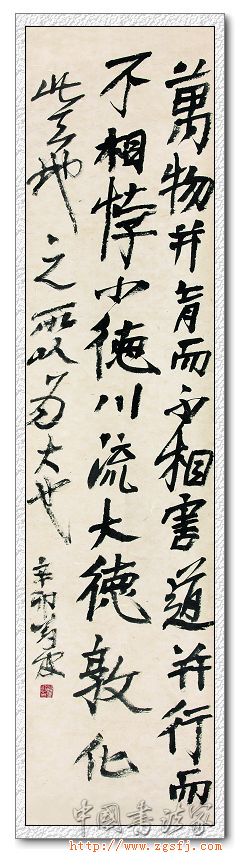 萬物并育而不相害道并行而
不相悖小德川流大德敦化
此天地之所以為大也 辛卯
中國書法家
http://www.zgsfj.com